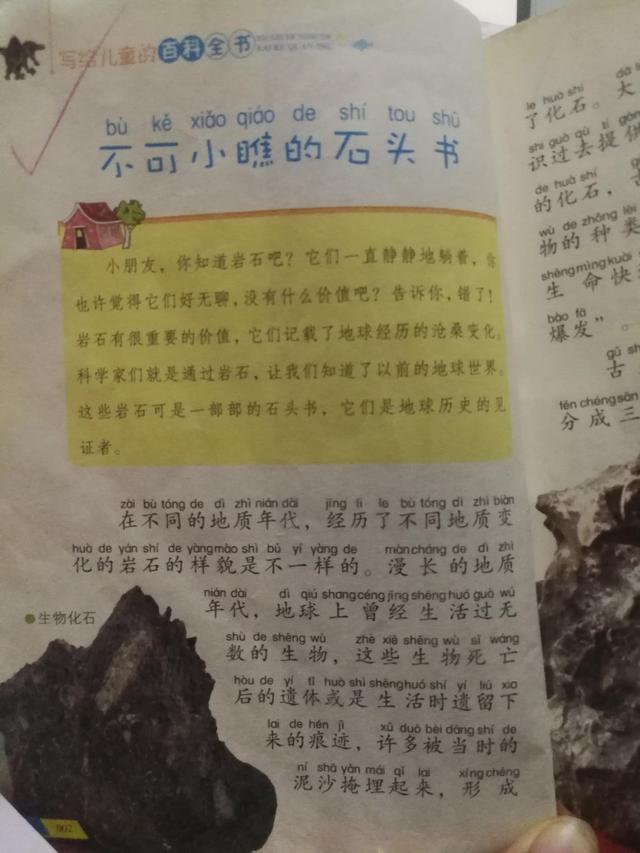 写给儿童的百科全书
bù kě xiǎo qiáo de shí tou shū
不可小瞧的石头书
小朋友，你知道岩石吧？它们一直静静地躺着，你
也许觉得它们好无聊，没有什么价值吧？告诉你，错了！
岩石有很重要的价值，它们记载了地球经历的沧桑变化。
科学家们就是通过岩石，让我们知道了以前的地球世界。
这些岩石可是一部部的石头书，它们是地球历史的见
证者。
zài bù tóng de dì zhì nián dài jīng lì le bù tóng dì zhì biàn
在不同的地质年代，经历了不同地质变
huà de yán shí de yàng mào shì bù yí yàng de màn cháng de dì zhì
化的岩石的样貌是不一样的。漫长的地质
nián dài dì qiú shang céng jīng shēng huó guò wú
年代，地球上曾经生活过无
shù de shēng wù zhè xiē shēng wù sǐ wáng
数的生物，这些生物死亡
hòu de yí tǐ huò shì shēng huó shí yí liú xia
后的遗体或是生活时遗留下
lai de hén jì xǔ duō bèi dāng shí de
来的痕迹，许多被当时的
ní shā yǎn mái qǐ lai xíng chéng
泥沙掩埋起来，形成
生物化石
002
le huà shí
了化石。大
shi guò qù tí gōng
识过去提供
de huà shí
的化石，
wù de zhǒng lèi
物的种类
shēng mìng kuài
生命快
bào fā
爆发”。
gǔ
古
fēn chéng sān
分成三